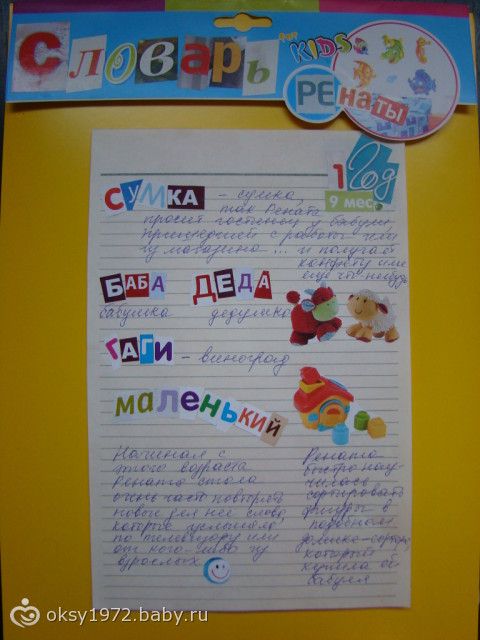 Словарь
для
KIDS
РЕНАТЫ
1 год
9 мес.
СУМКА - сумка,
так Рената
просит гостинец у бабули,
пришедшей с работы или
из магазина... и получает
конфету или
ещё что нибудь
БАБА ДЕДА
бабушка дедушка
ГАГИ - виноград
маленький
Начиная с
этого возраста
Рената стала
очень часто повторять
новые для неё слова,
которые услышала
по телевизору или
от кого-либо из
взрослых.
Рената
быстро научилась
сортировать
фигуры в
подобном
домике-сортере,
который
купила ей
бабуля
oksy1972.baby.ru